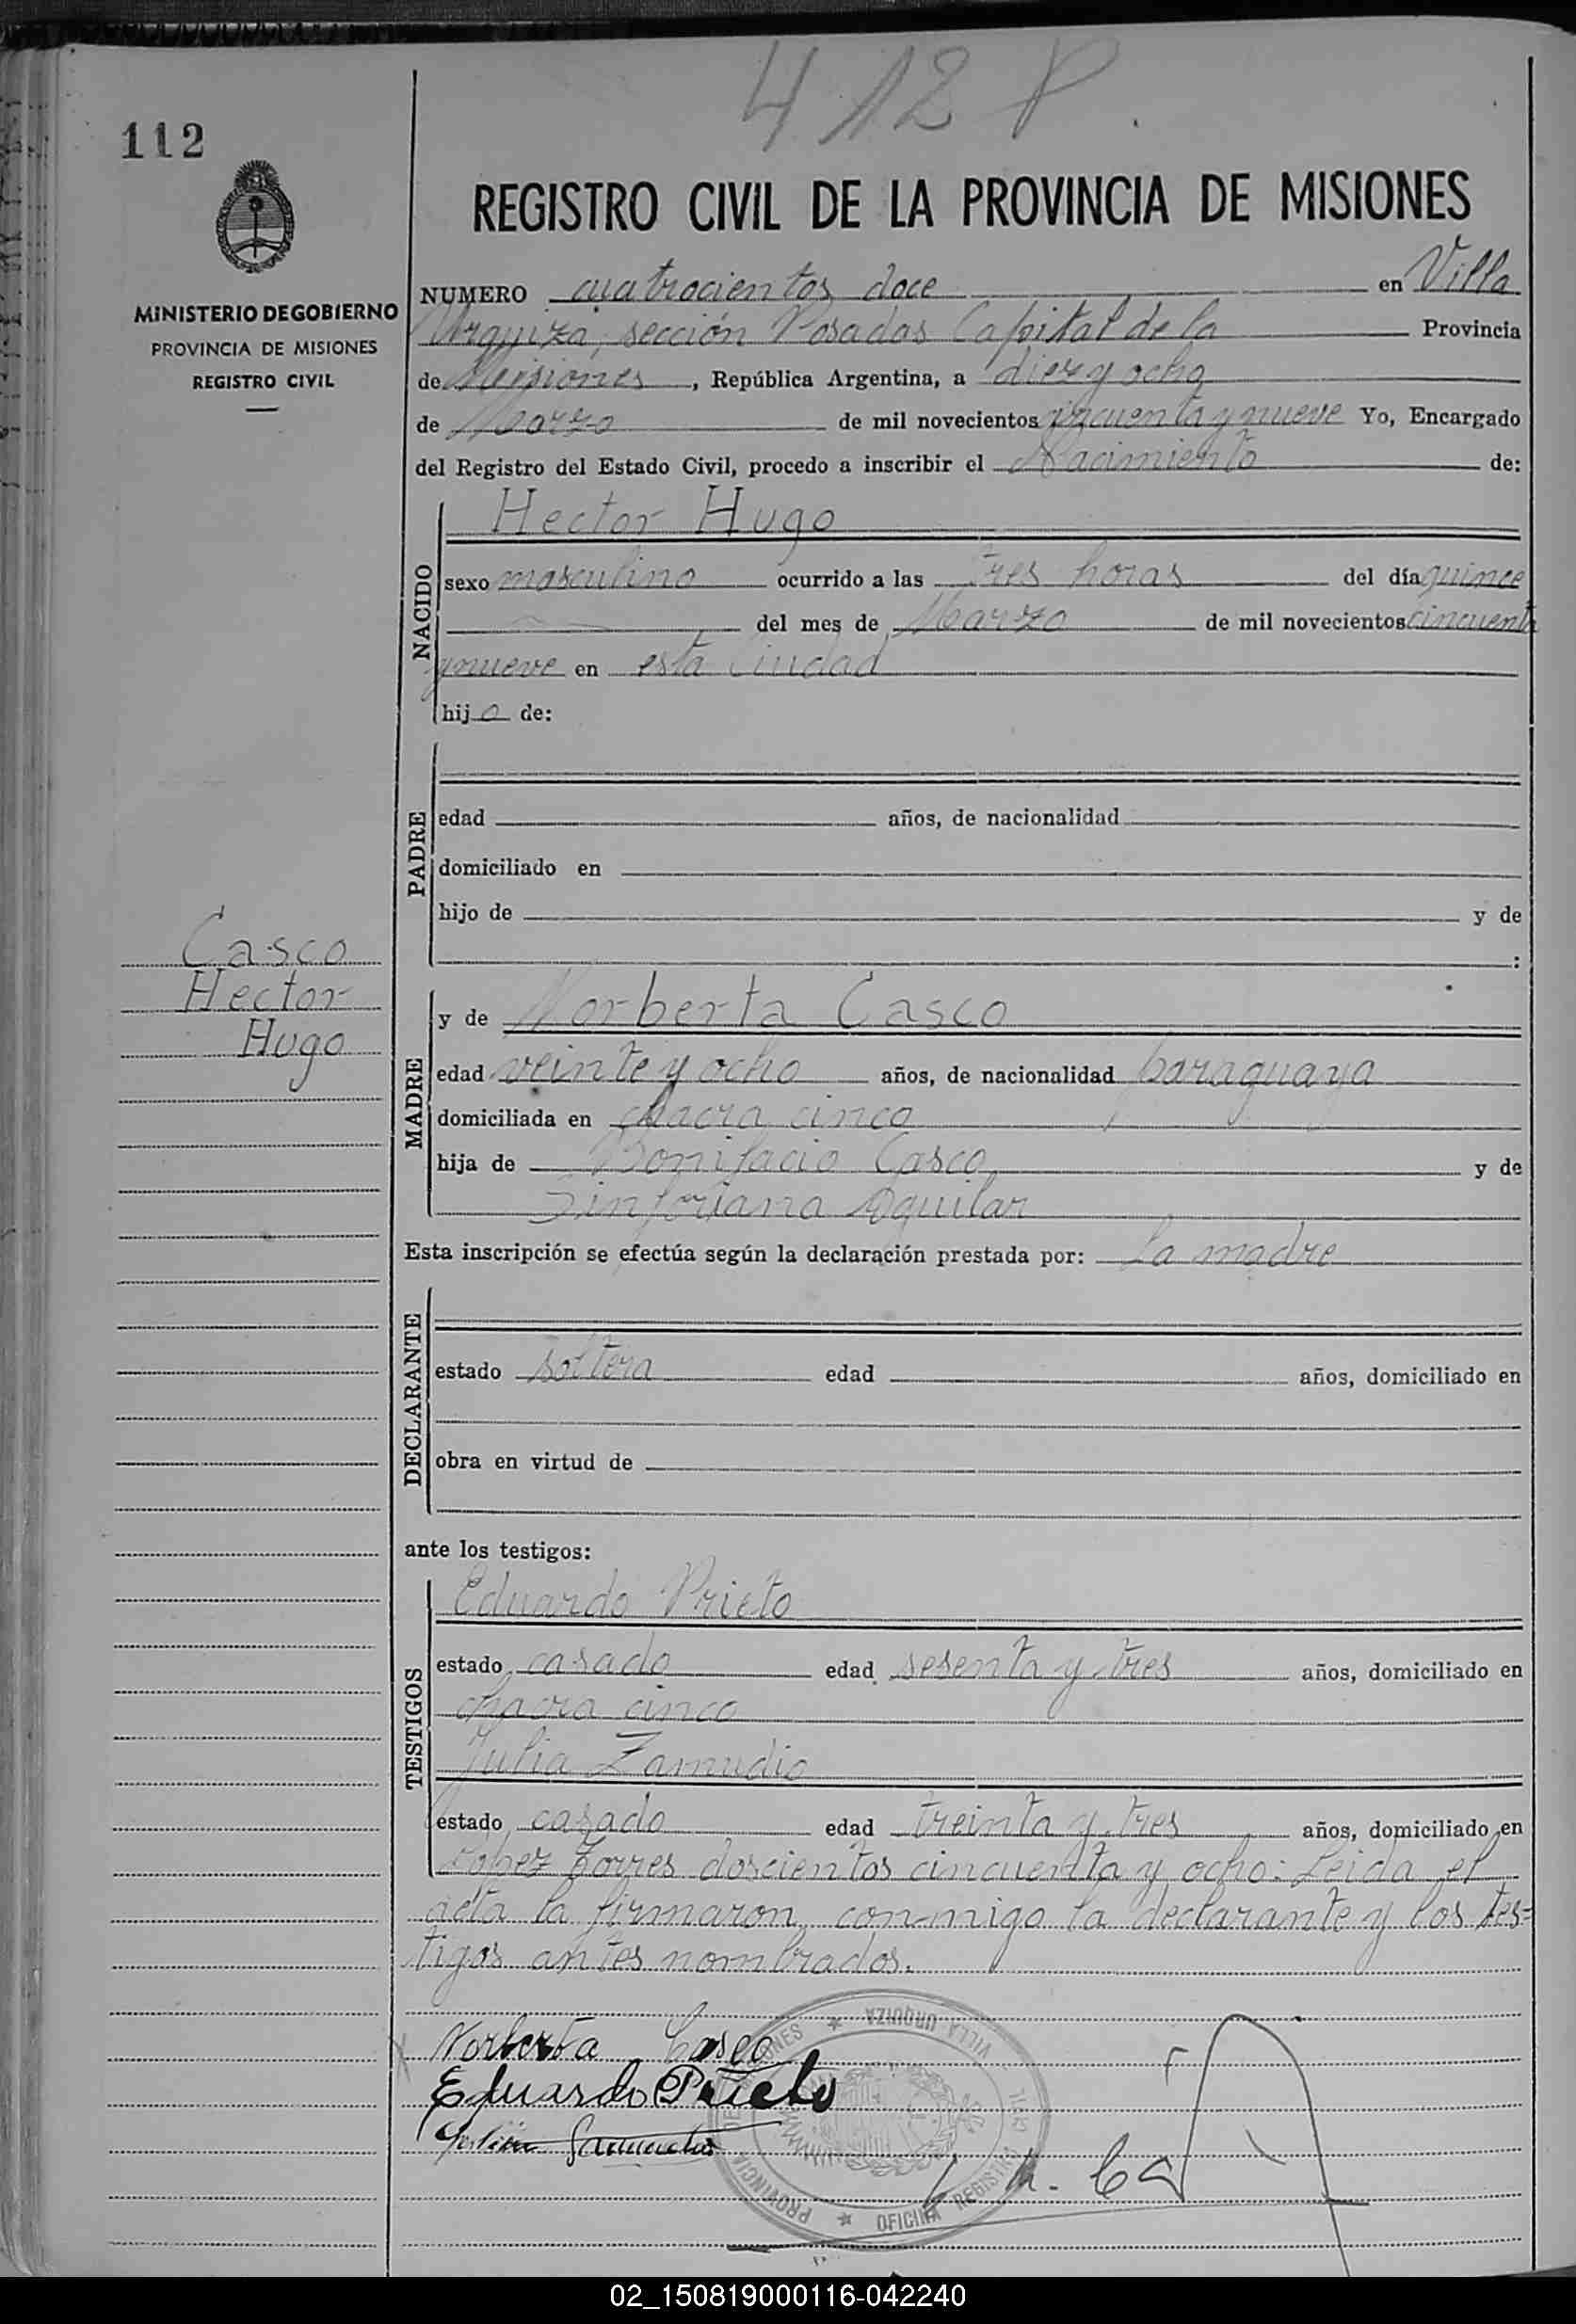 412 P.
112
REGISTRO CIVIL DE LA PROVINCIA DE MISIONES
MINISTERIO DE GOBIERNO
PROVINCIA DE MISIONES
REGISTRO CIVIL
NUMERO cuatrocientos doce en Villa
Urquiza, sección Posadas Capital de la Provincia
de Misiones, República Argentina, a diez y ocho
de Marzo de mil novecientos cincuenta y nueve Yo, Encargado
del Registro del Estado Civil, procedo a inscribir el Nacimiento de:
NACIDO
Hector Hugo
sexo masculino ocurrido a las tres horas del día quince
del mes de Marzo de mil novecientos cincuenta
y nueve en esta Ciudad
hijo de:
PADRE
edad años, de nacionalidad
domiciliado en
hijo de y de
:
Casco
Hector
Hugo
MADRE
y de Norberta Casco
edad veinte y ocho años, de nacionalidad paraguaya
domiciliada en chacra cinco
hija de Bonifacio Casco y de
Sinforiana Aguilar
Esta inscripción se efectúa según la declaración prestada por: La madre
DECLARANTE
estado soltera edad años, domiciliado en
obra en virtud de
ante los testigos:
TESTIGOS
Eduardo Prieto
estado casado edad sesenta y tres años, domiciliado en
chacra cinco
Julia Zamudio
estado casado edad treinta y tres años, domiciliado en
López Torres doscientos cincuenta y ocho: Leida el
acta la firmaron conmigo la declarante y los tes=
tigos antes nombrados.
Norberta Casco
Eduardo Prieto
VILLA URQUIZA
PROVINCIA DE MISIONES
OFICINA REGISTRO CIVIL
02_150819000116-042240